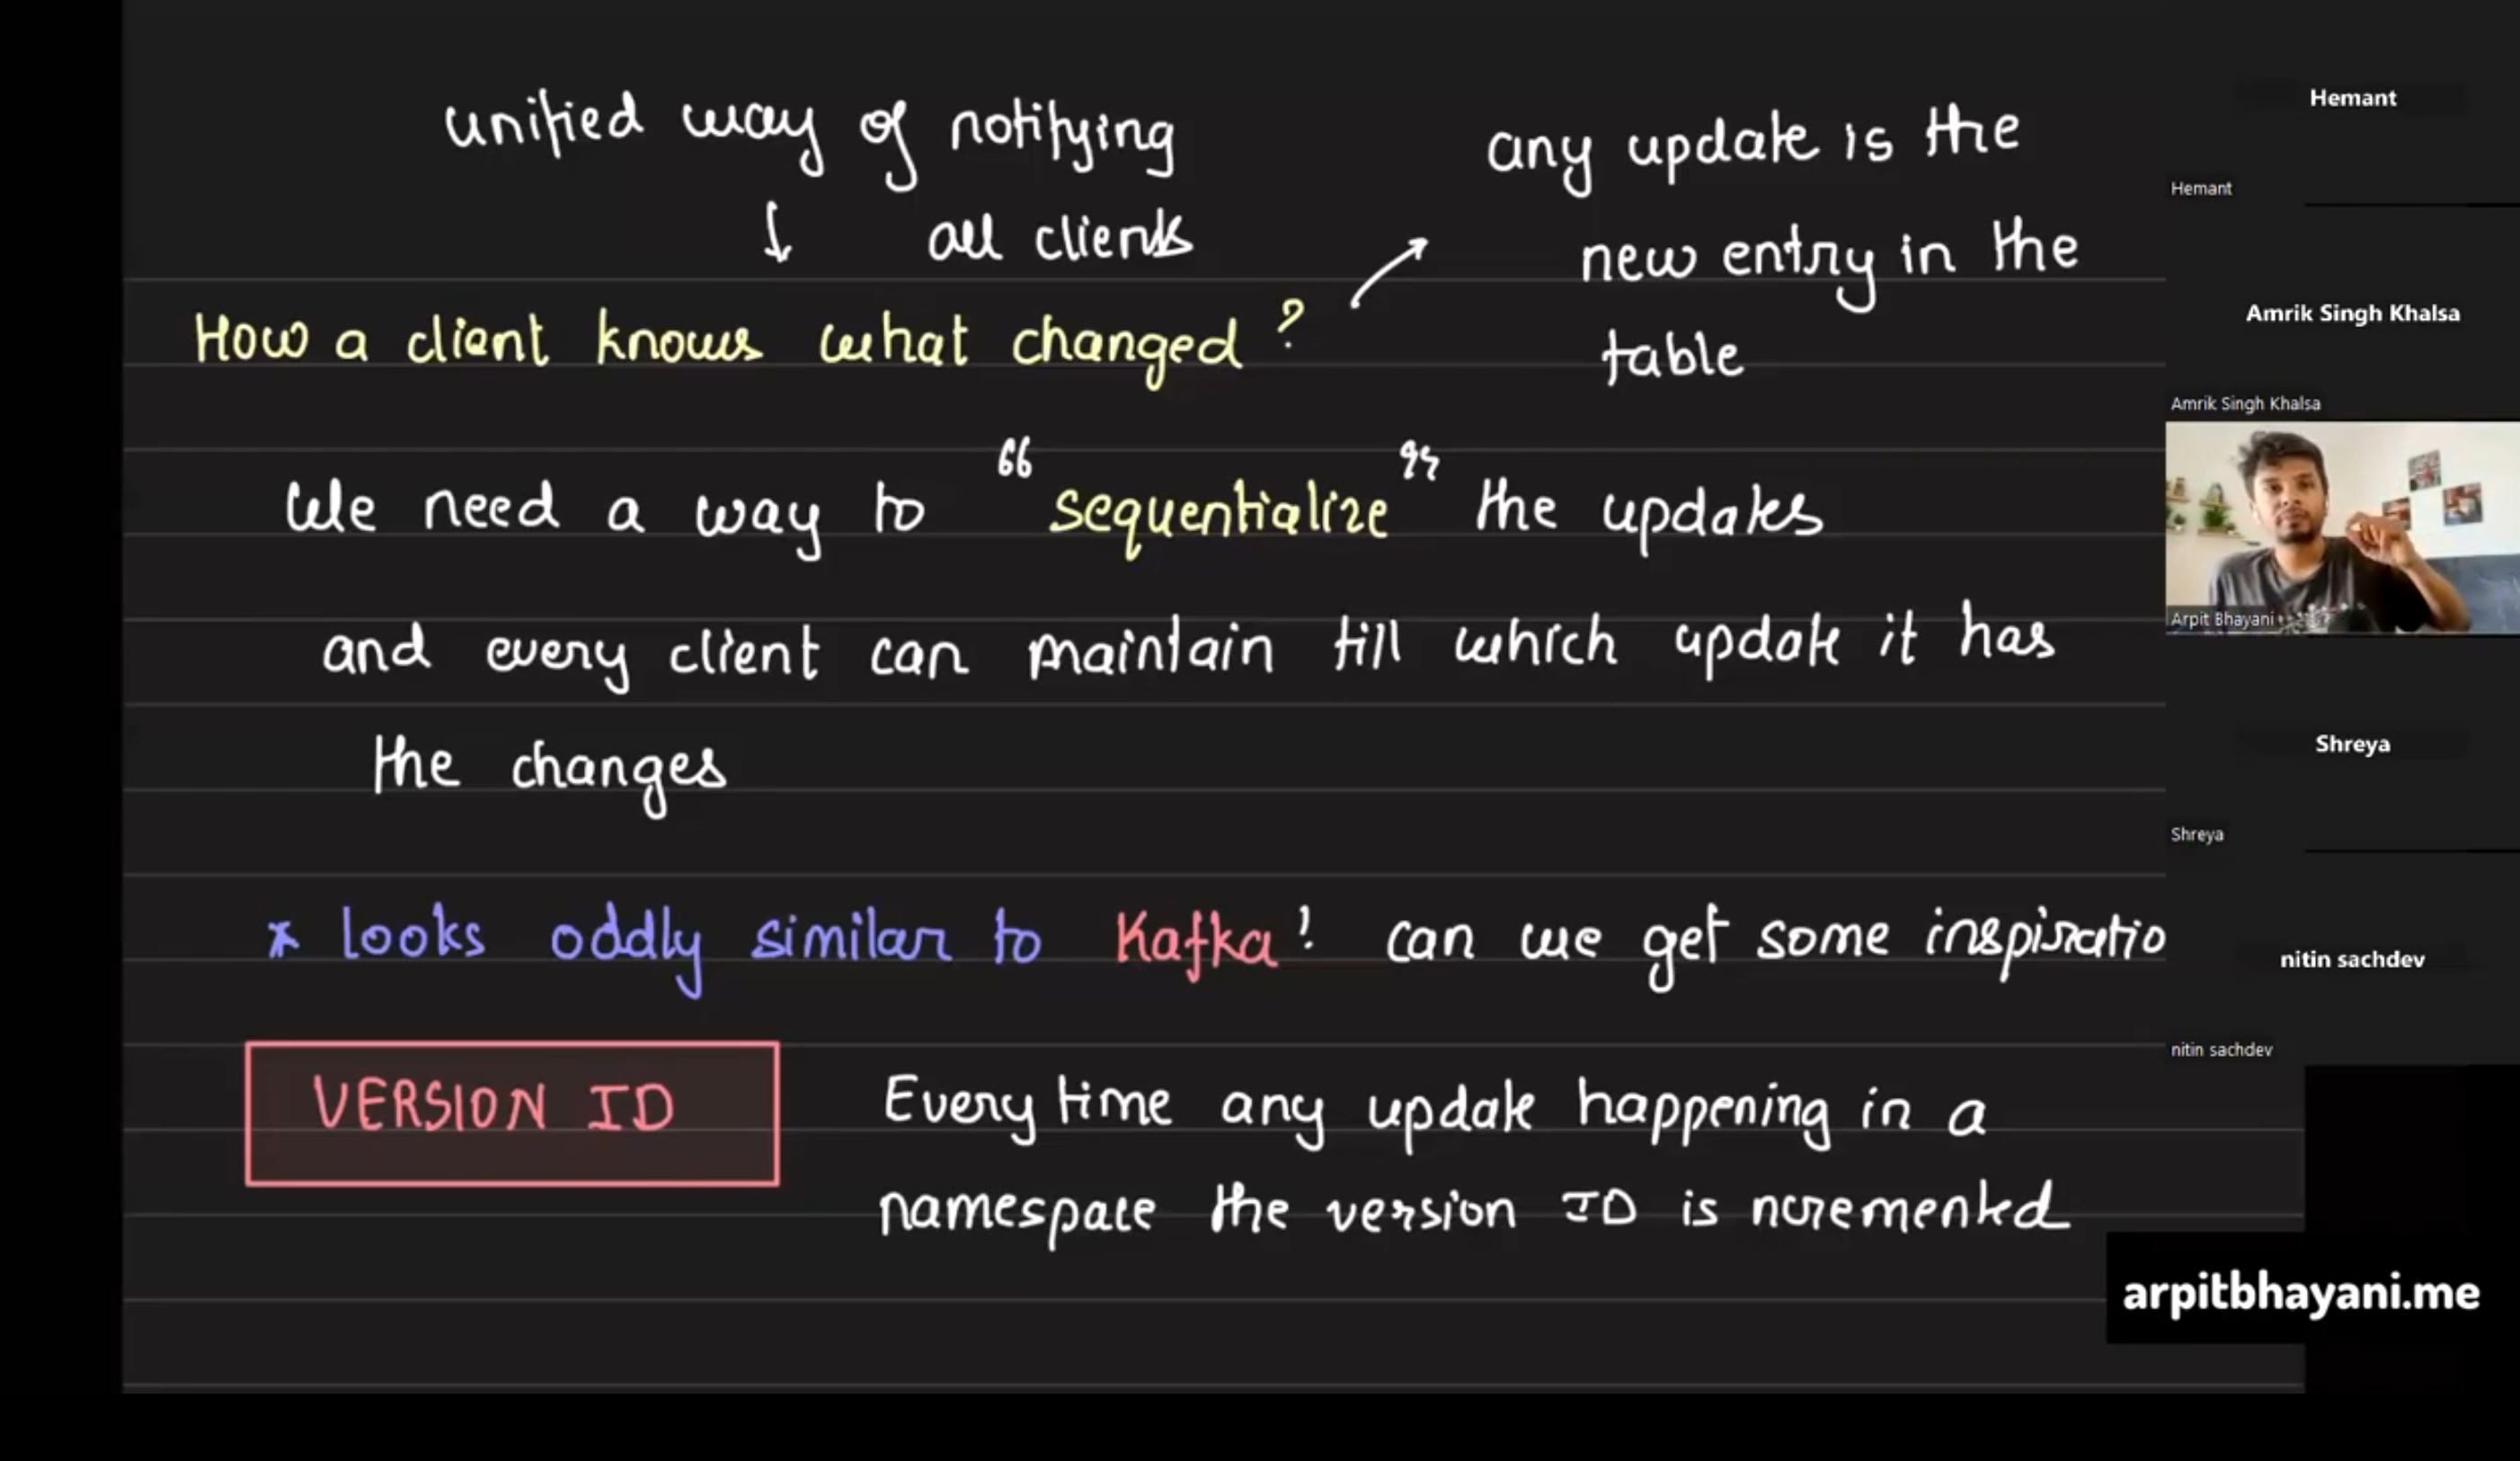 unified way of notifying
↓ all clients
any update is the
new entry in the
table
How a client knows what changed?
We need a way to "sequentialize" the updates
and every client can maintain till which update it has
the changes
* looks oddly similar to Kafka! can we get some inspiratio
VERSION ID
Every time any update happening in a
namespace the version ID is ncremented
Hemant
Hemant
Amrik Singh Khalsa
Amrik Singh Khalsa
Arpit Bhayani
Shreya
Shreya
nitin sachdev
nitin sachdev
arpitbhayani.me